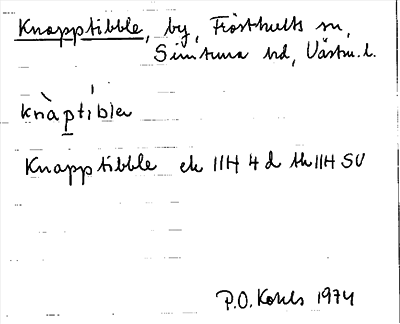 Knapptibble, by, Frösthults sn,
Simtuna hd, Västm.l.
knàptíblɐ
Knapptibble ek 11H 4d th 11H SV
P.O. Kohls 1974